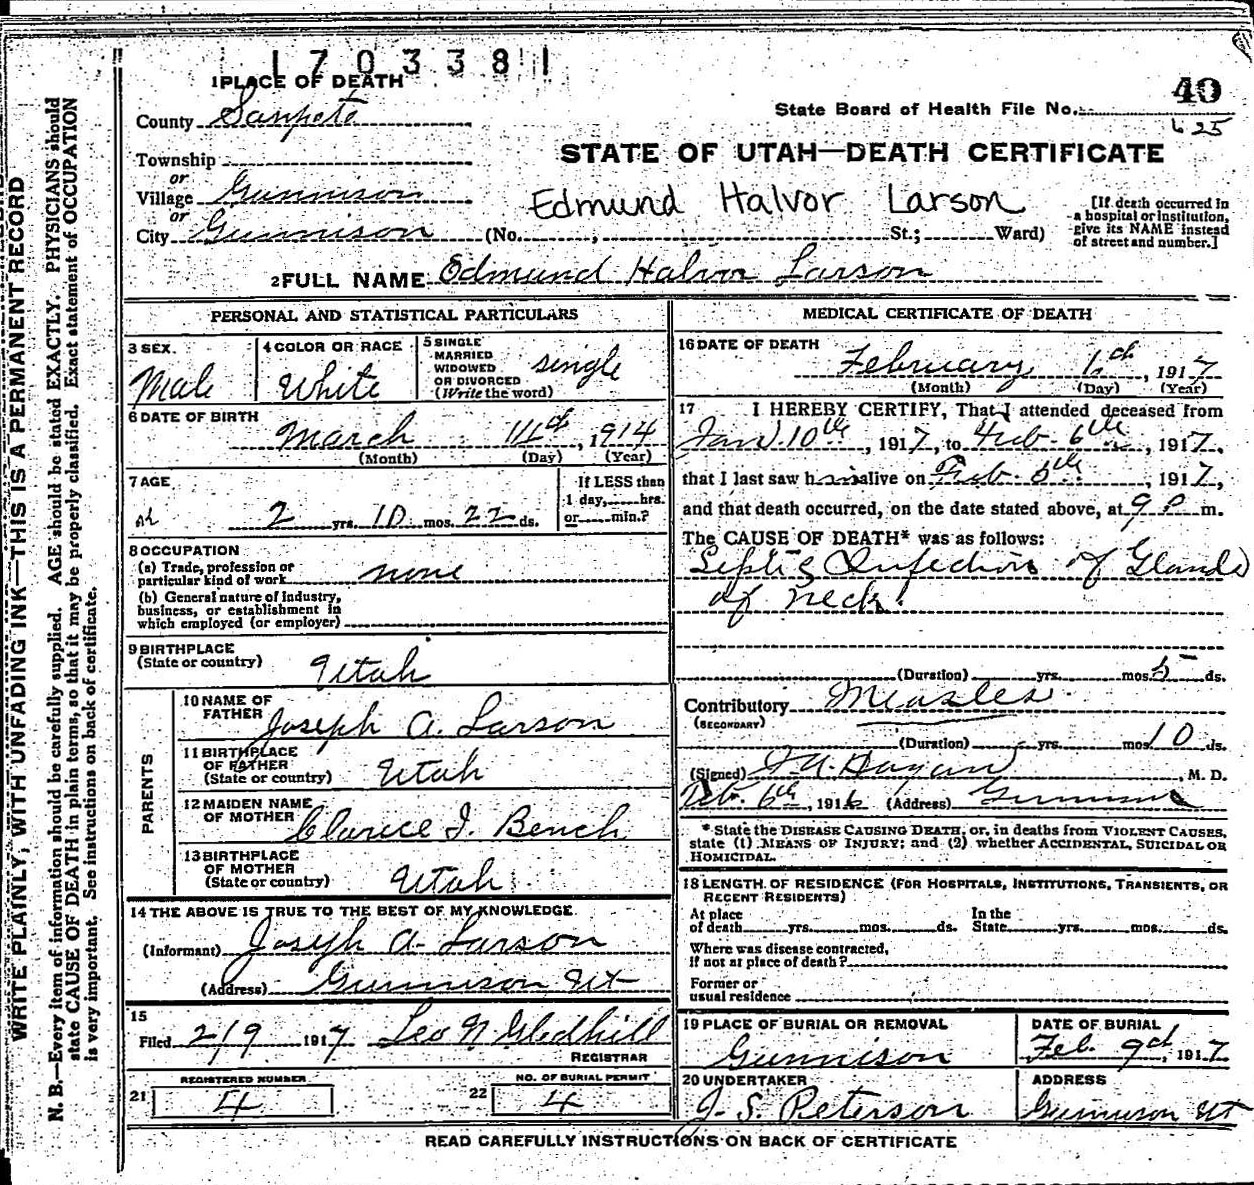 1703381
1 PLACE OF DEATH
40
State Board of Health File No.
625
County Sanpete
STATE OF UTAH—DEATH CERTIFICATE
Township
or
Village Gunnison
Edmund Halvor Larson
[If death occurred in
a hospital or institution,
give its NAME instead
of street and number.]
or
City Gunnison (No. , St.; Ward)
2 FULL NAME Edmund Halvor Larson
PERSONAL AND STATISTICAL PARTICULARS
3 SEX
Male
4 COLOR OR RACE
White
5 SINGLE
MARRIED
WIDOWED
OR DIVORCED
(Write the word)
single
6 DATE OF BIRTH
March 14th, 1914
(Month) (Day) (Year)
7 AGE
2 yrs. 10 mos. 22 ds.
If LESS than
1 day, hrs.
or min.?
8 OCCUPATION
(a) Trade, profession or
particular kind of work none
(b) General nature of industry,
business, or establishment in
which employed (or employer)
9 BIRTHPLACE
(State or country) Utah
PARENTS
10 NAME OF
FATHER Joseph A. Larson
11 BIRTHPLACE
OF FATHER
(State or country) Utah
12 MAIDEN NAME
OF MOTHER Clarice I. Bench
13 BIRTHPLACE
OF MOTHER
(State or country) Utah
14 THE ABOVE IS TRUE TO THE BEST OF MY KNOWLEDGE
(Informant) Joseph A. Larson
(Address) Gunnison Ut
15
Filed 2/9 1917 Leo N Gledhill
REGISTRAR
21 REGISTERED NUMBER
4
22 NO. OF BURIAL PERMIT
4
MEDICAL CERTIFICATE OF DEATH
16 DATE OF DEATH
February 6th, 1917
(Month) (Day) (Year)
17 I HEREBY CERTIFY, That I attended deceased from
Jan. 10th, 1917, to Feb. 6th, 1917,
that I last saw him alive on Feb. 6th, 1917,
and that death occurred, on the date stated above, at 9 P m.
The CAUSE OF DEATH* was as follows:
Septic Infection of Glands
of neck.
(Duration) yrs. mos. 5 ds.
Contributory Measles
(SECONDARY)
(Duration) yrs. mos. 10 ds.
(Signed) , M. D.
Feb. 6th, 1916 (Address) Gunnison
* State the DISEASE CAUSING DEATH, or, in deaths from VIOLENT CAUSES,
state (1) MEANS OF INJURY; and (2) whether ACCIDENTAL, SUICIDAL OR
HOMICIDAL.
18 LENGTH OF RESIDENCE (FOR HOSPITALS, INSTITUTIONS, TRANSIENTS, OR
RECENT RESIDENTS)
At place
of death yrs. mos. ds.
In the
State yrs. mos. ds.
Where was disease contracted,
if not at place of death?
Former or
usual residence
19 PLACE OF BURIAL OR REMOVAL
Gunnison
DATE OF BURIAL
Feb. 9th, 1917
20 UNDERTAKER
J. S. Peterson
ADDRESS
Gunnison Ut
READ CAREFULLY INSTRUCTIONS ON BACK OF CERTIFICATE
WRITE PLAINLY, WITH UNFADING INK—THIS IS A PERMANENT RECORD
N. B.—Every item of information should be carefully supplied. AGE should be stated EXACTLY. PHYSICIANS should
state CAUSE OF DEATH in plain terms, so that it may be properly classified. Exact statement of OCCUPATION
is very important. See instructions on back of certificate.